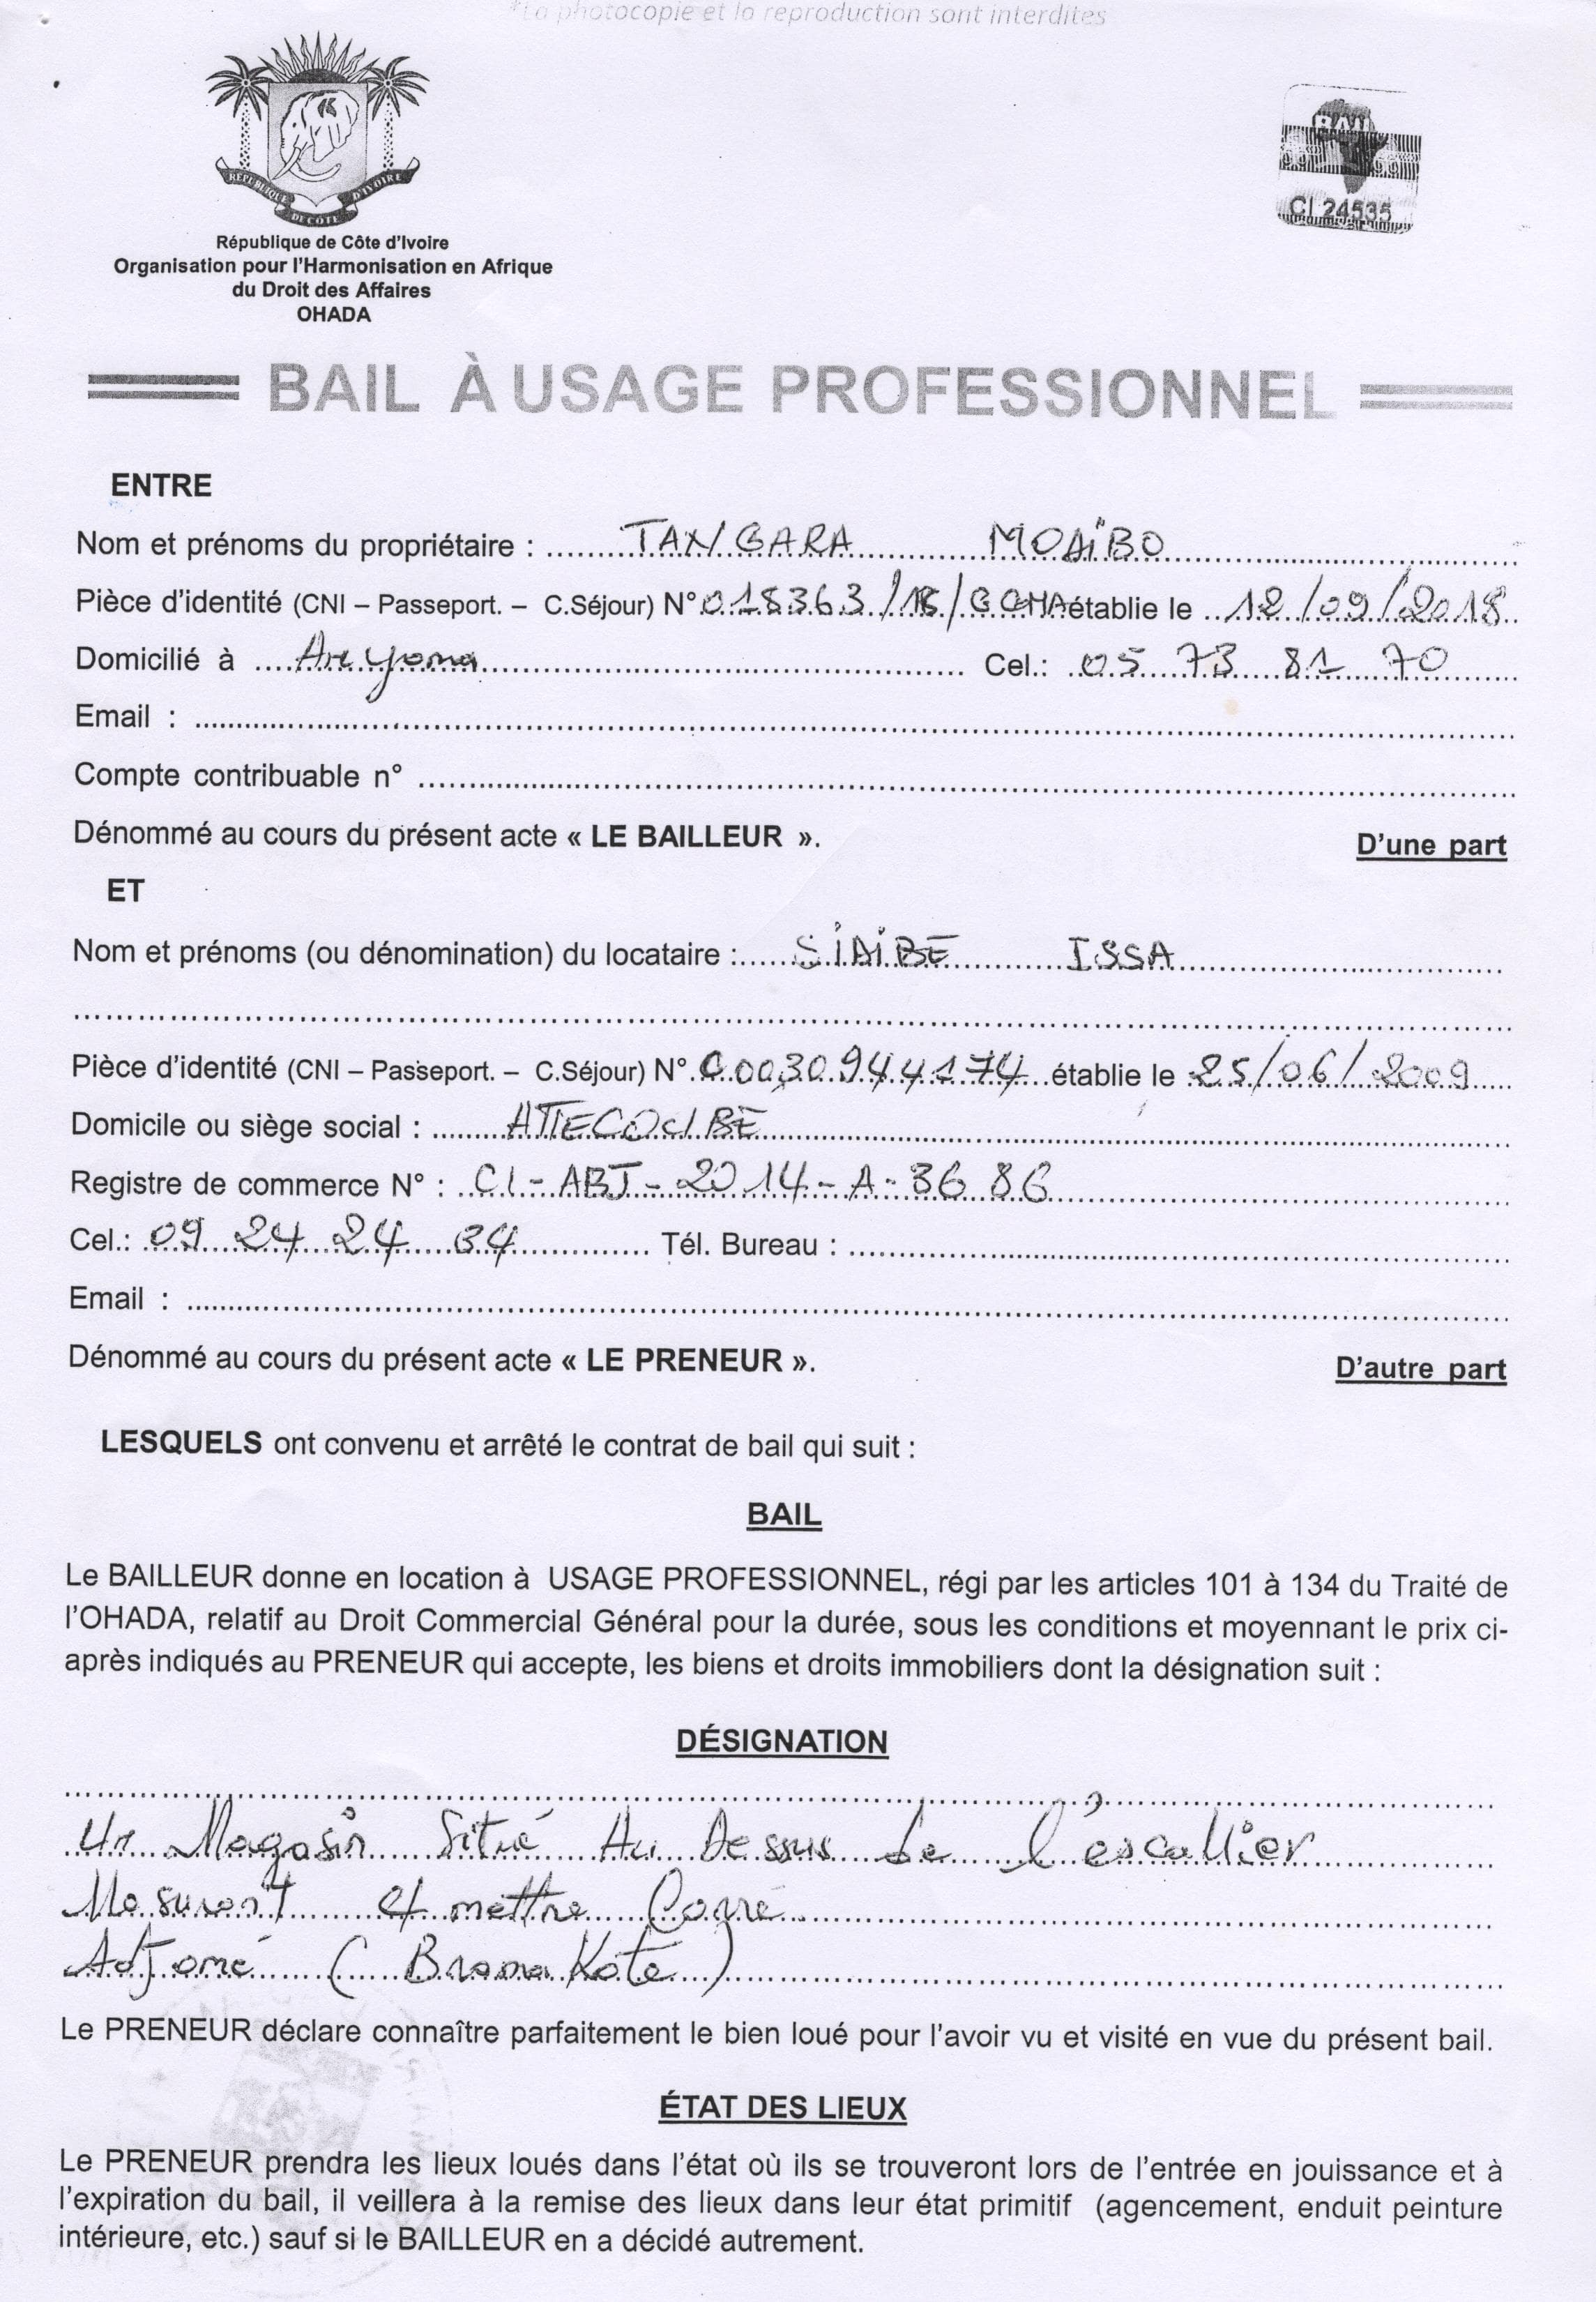 *La photocopie et la reproduction sont interdites
RÉPUBLIQUE DE CÔTE D'IVOIRE
BAIL
CI 24535
République de Côte d'Ivoire
Organisation pour l'Harmonisation en Afrique
du Droit des Affaires
OHADA
BAIL À USAGE PROFESSIONNEL
ENTRE
Nom et prénoms du propriétaire : TANGARA MOAÏBO
Pièce d'identité (CNI – Passeport. – C.Séjour) N° établie le 12/09/2018
Domicilié à Cel.: 05 73 81 70
Email :
Compte contribuable n°
Dénommé au cours du présent acte « LE BAILLEUR ». D'une part
ET
Nom et prénoms (ou dénomination) du locataire : SIAIBE ISSA
Pièce d'identité (CNI – Passeport. – C.Séjour) N° C0030944174 établie le 25/06/2009
Domicile ou siège social : ATTECOUBE
Registre de commerce N° : CI-ABJ-2014-A-3686
Cel.: 09 24 24 64 Tél. Bureau :
Email :
Dénommé au cours du présent acte « LE PRENEUR ». D'autre part
LESQUELS ont convenu et arrêté le contrat de bail qui suit :
BAIL
Le BAILLEUR donne en location à USAGE PROFESSIONNEL, régi par les articles 101 à 134 du Traité de
l'OHADA, relatif au Droit Commercial Général pour la durée, sous les conditions et moyennant le prix ci-
après indiqués au PRENEUR qui accepte, les biens et droits immobiliers dont la désignation suit :
DÉSIGNATION
Un Magasin Situé Au Dessus de l'escallier
Mesurant 4 mettre Carré
Adjamé (Brama Koté)
Le PRENEUR déclare connaître parfaitement le bien loué pour l'avoir vu et visité en vue du présent bail.
ÉTAT DES LIEUX
Le PRENEUR prendra les lieux loués dans l'état où ils se trouveront lors de l'entrée en jouissance et à
l'expiration du bail, il veillera à la remise des lieux dans leur état primitif (agencement, enduit peinture
intérieure, etc.) sauf si le BAILLEUR en a décidé autrement.